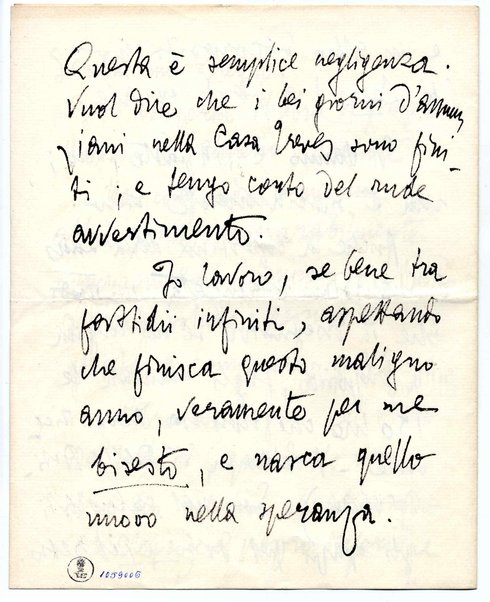 Questa è semplice negligenza.
Vuol dire che i bei giorni d'annun
ziani nella Casa Treves sono fini-
ti; e tengo conto del rude
avvertimento.
Io lavoro, se bene tra
fastidii infiniti, aspettando
che finisca questo maligno
anno, veramente per me
bisesto, e nasca quello
nuovo nella speranza.
1059006